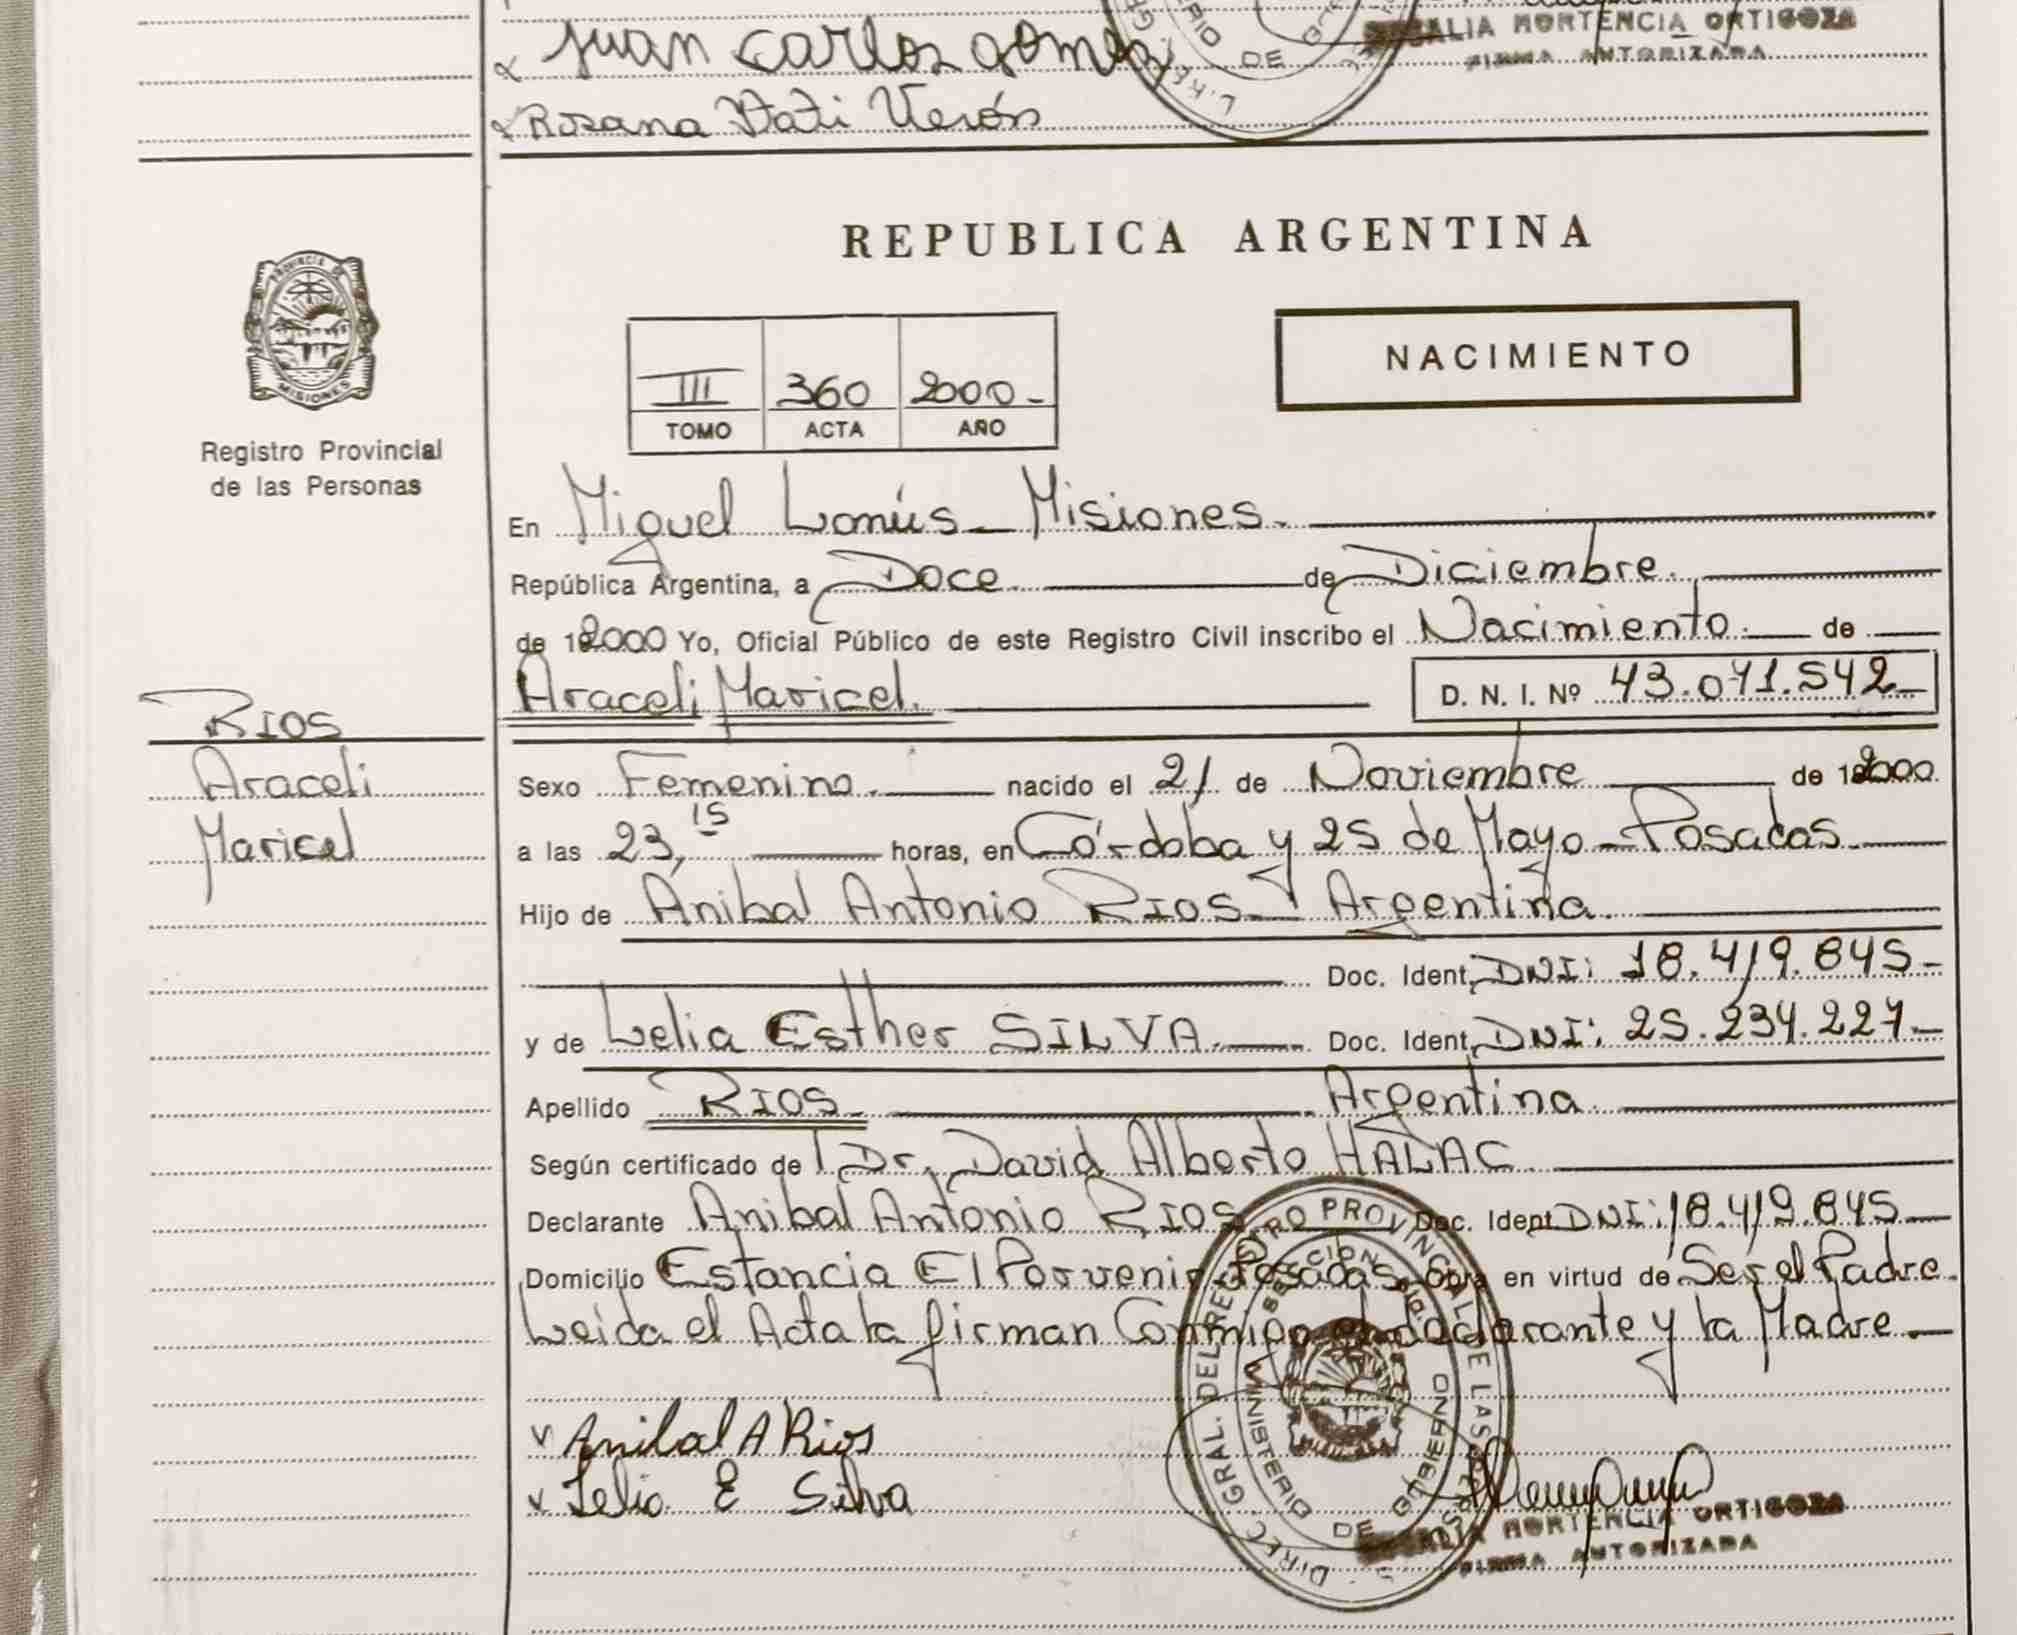 Juan Carlos Gomez
Rosana Itati Verón
HORTENCIA ORTIGOZA
FIRMA AUTORIZADA
L. REG
RIO DE
PROVINCIA DE
MISIONES
Registro Provincial
de las Personas
REPUBLICA ARGENTINA
NACIMIENTO
III 360 2000-
TOMO ACTA AÑO
En Miguel Lanús - Misiones.
República Argentina, a Doce de Diciembre.
de 12000 Yo, Oficial Público de este Registro Civil inscribo el Nacimiento. de
Araceli Maricel. D. N. I. Nº 43.071.542-
RIOS
Araceli
Maricel
Sexo Femenino. nacido el 21 de Noviembre de 2000.
a las 23,15 horas, en Córdoba y 25 de Mayo - Posadas.
Hijo de Anibal Antonio RIOS - Argentina.
Doc. Ident. DNI: 18.419.845-
y de Lelia Esther SILVA. Doc. Ident. DNI: 25.234.227.-
Apellido RIOS. Argentina.
Según certificado de Dr. David Alberto HALAC
Declarante Anibal Antonio RIOS Doc. Ident. DNI: 18.419.845
Domicilio Estancia El Porvenir - Posadas. Obra en virtud de Ser el Padre.
Leida el Acta la firman Conmigo el declarante y la Madre
Anibal A Rios
Lelia E Silva
DIREC. GRAL. DEL REGISTRO PROVINCIAL DE LAS PERSONAS
MINISTERIO DE GOBIERNO
HORTENCIA ORTIGOZA
FIRMA AUTORIZADA